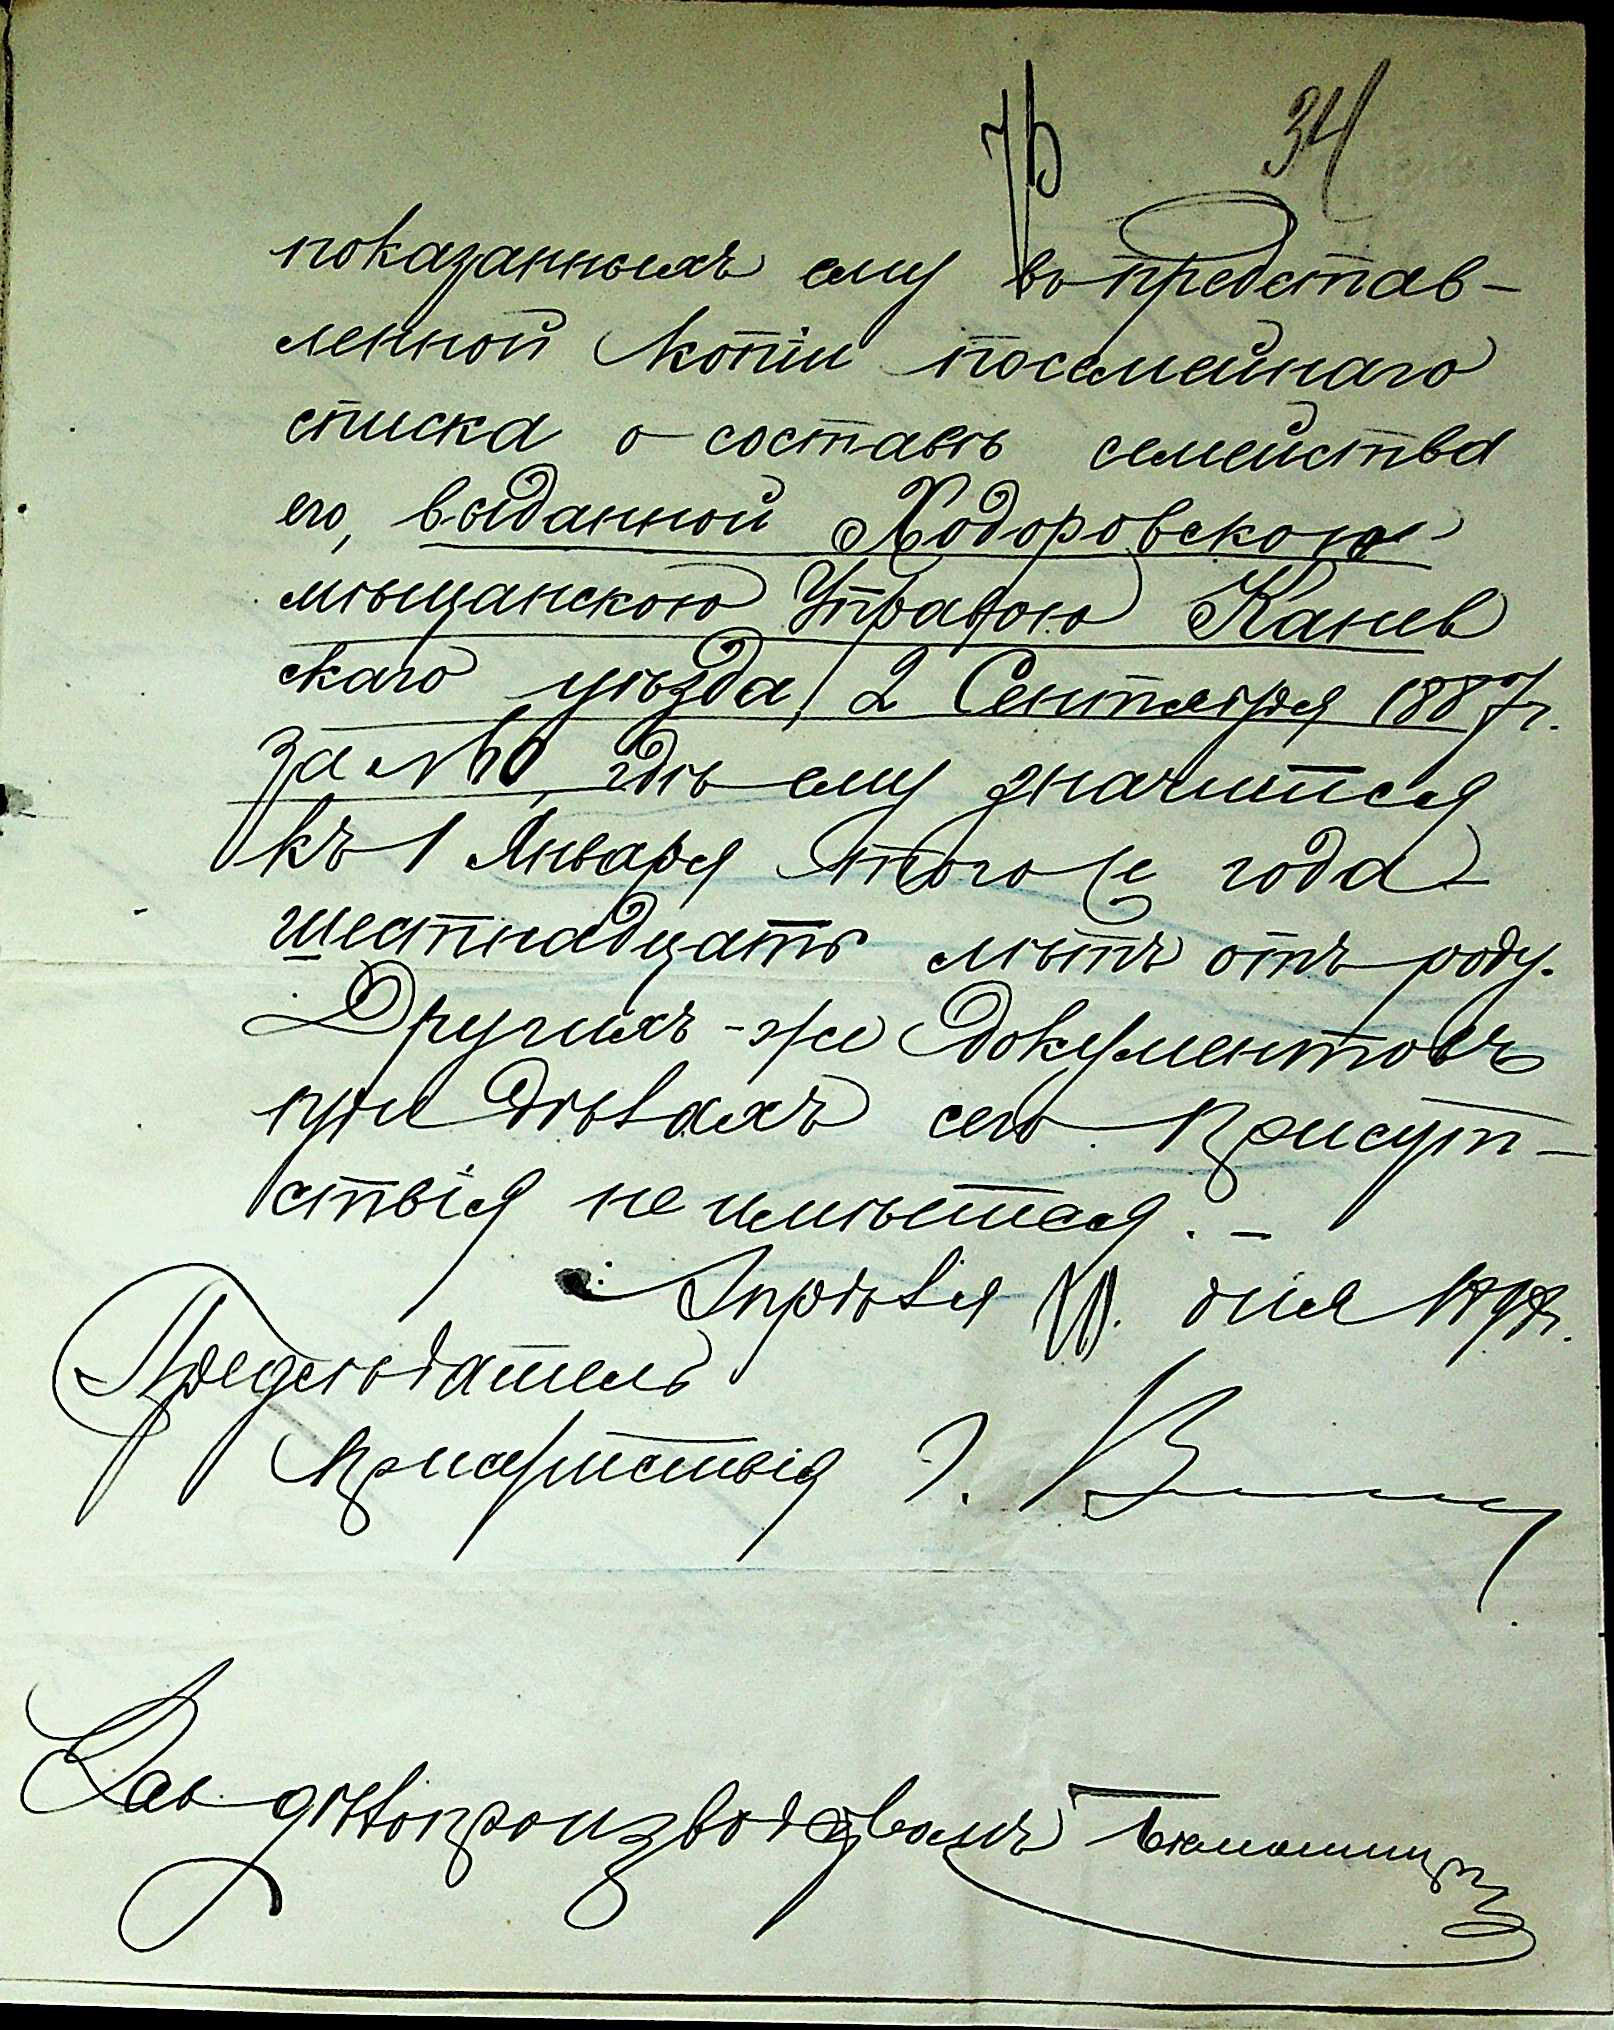 34
показанныхъ ему въ представ-
ленной копіи посемейнаго
списка о составѣ семейства
его, выданной Ходоровскою
мѣщанскою Управою Канев
скаго уѣзда, 2 Сентября 1887 г.
за №, гдѣ ему значится
къ 1 Января того же года
шестнадцать лѣтъ отъ роду.
Другихъ-же документовъ
при дѣлахъ сего Присут-
ствія не имѣется. -
Апрѣля дня г.
Предсѣдатель
Присутствія
Зав дѣлопроизводствомъ